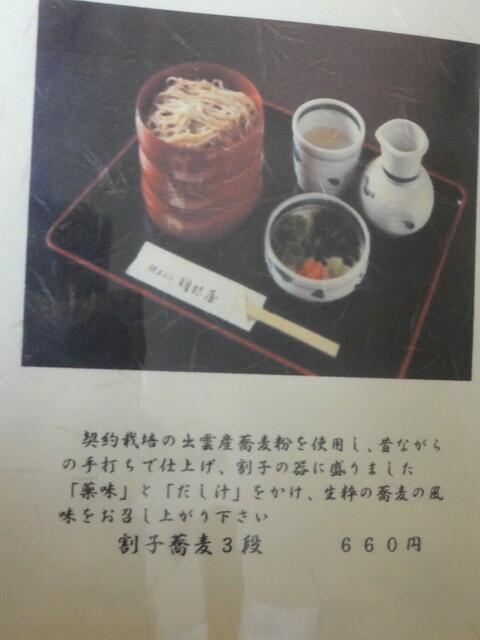 契約栽培の出雲産蕎麦粉を使用し、昔ながら
の手打ちで仕上げ、割子の器に盛りました
「薬味」と「だし汁」をかけ、生粋の蕎麦の風
味をお召し上がり下さい
割子蕎麦3段 660円